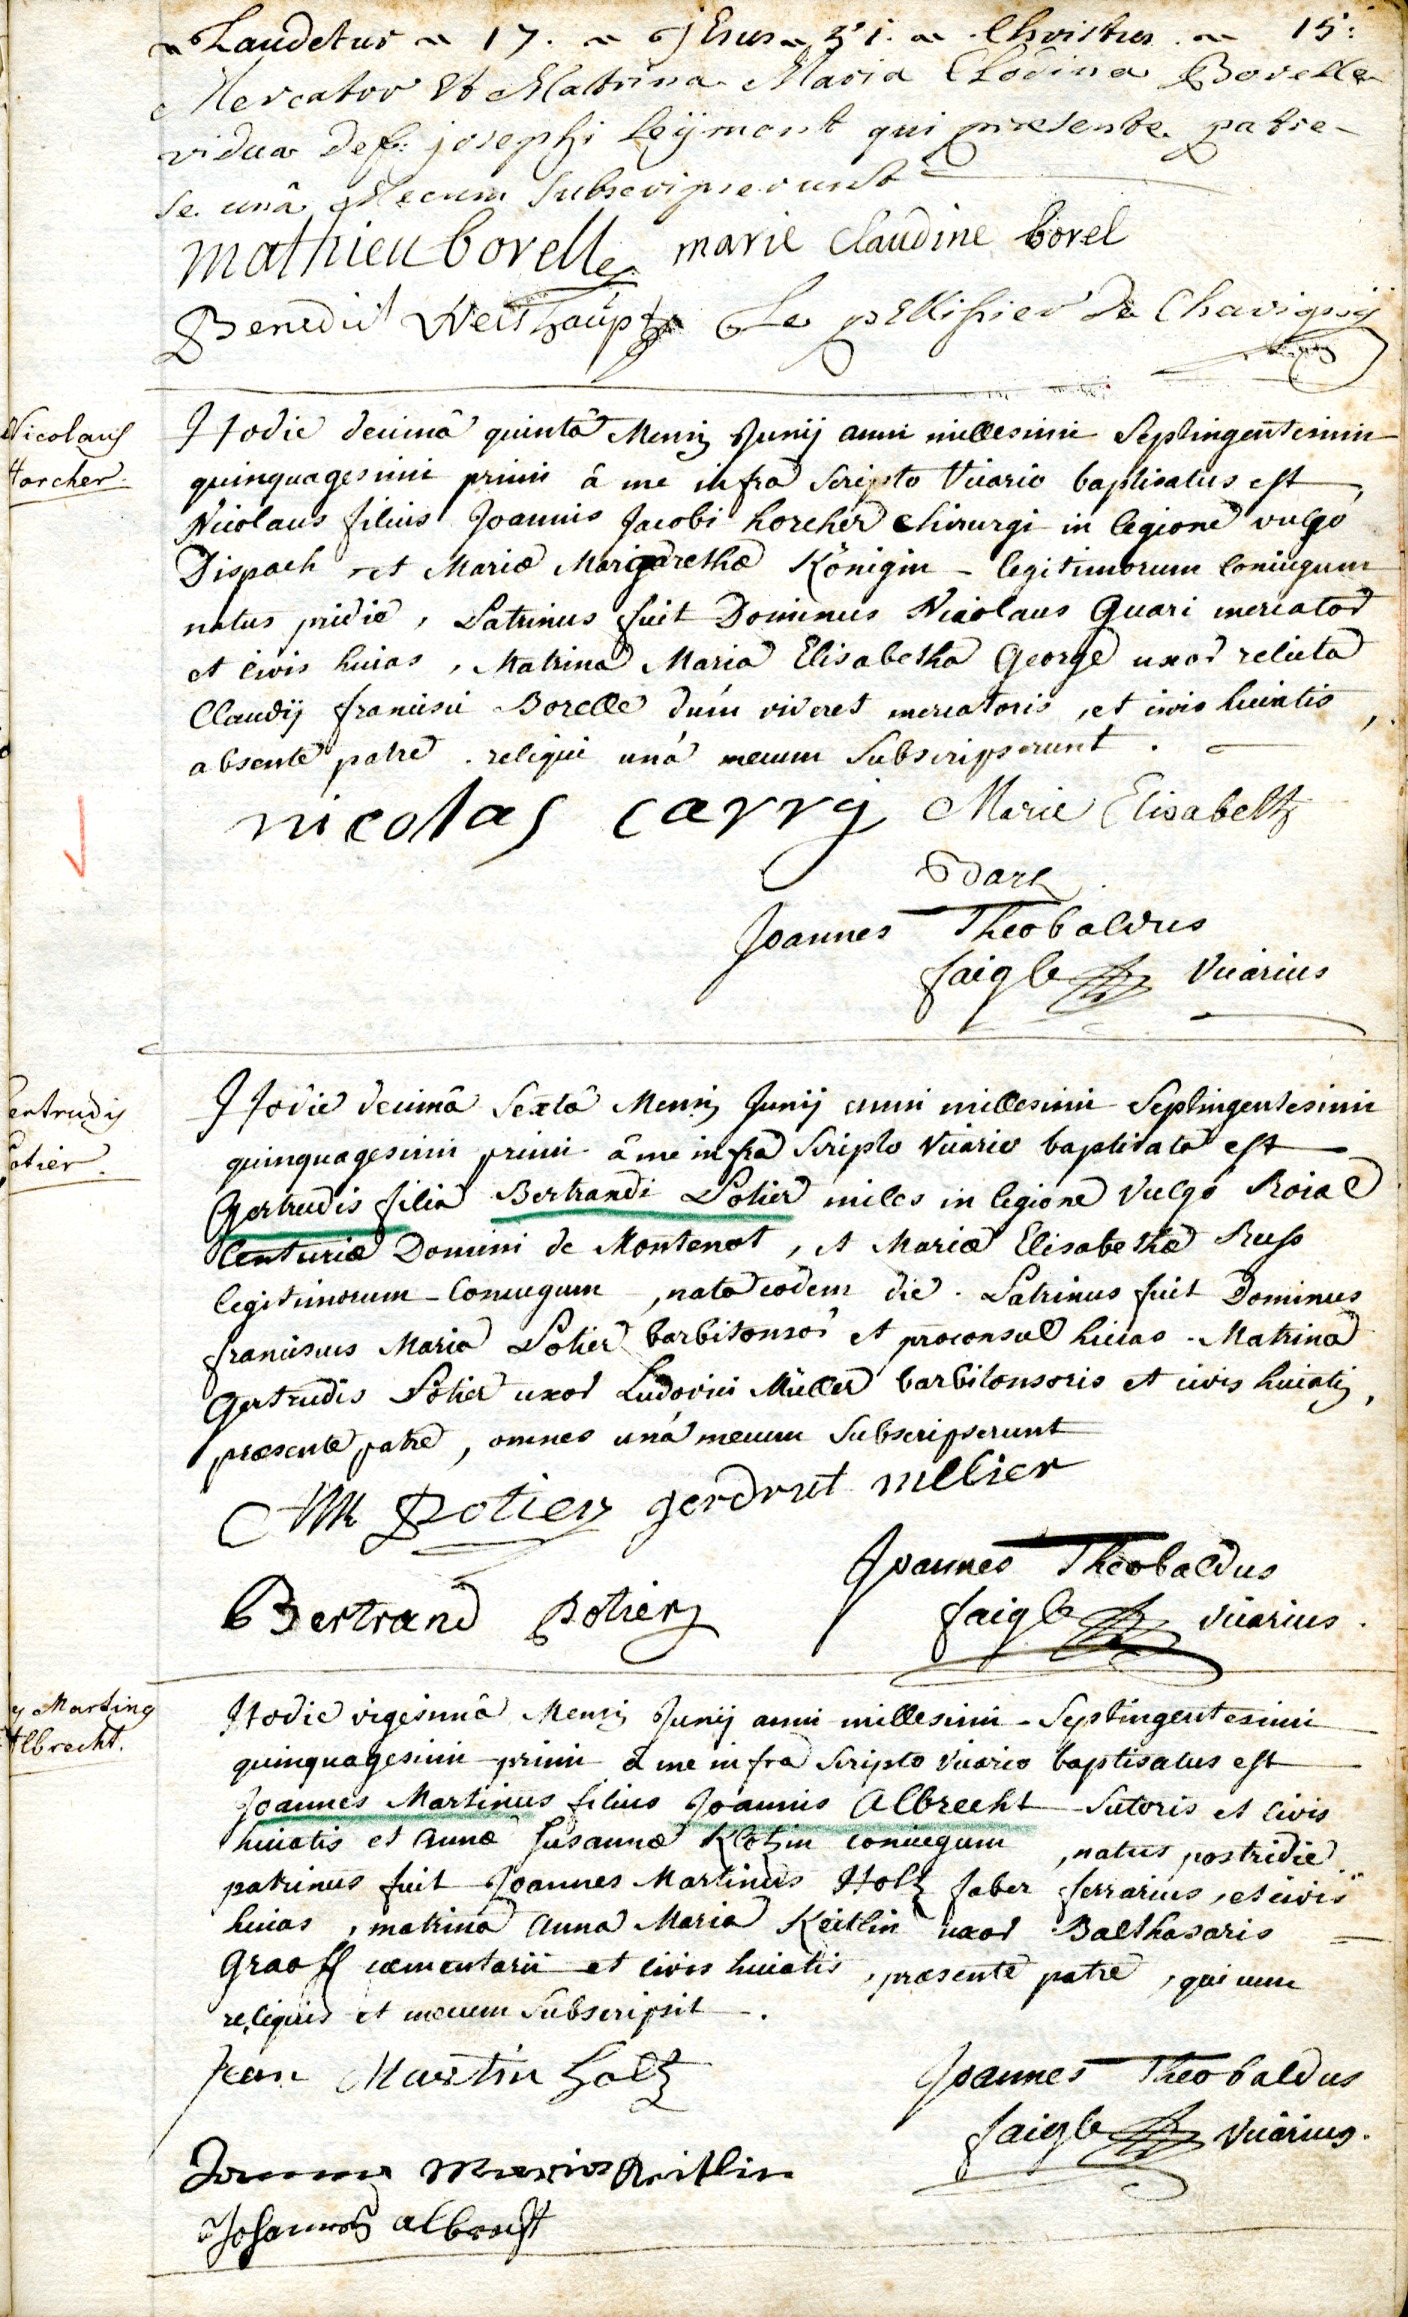 Laudetur 17. Jesus 51. Christus 15:
Mercator et Matrina Maria Clodina Borelle
vidua def: josephi leijmont qui præsente patre
se unâ Mecum Subscripserunt
mathieu borelle marie Claudine borel
Benedict Weishaupt Le pellissier de Chavignij
Nicolaus
Horcher.
Hodie decimâ quintâ Mensis Junij anni millesimi Septingentesimi
quinquagesimi primi â me infra Scripto Vicario baptisatus est
Nicolaus filius Joannis Jacobi horcher Chirurgi in legione vulgo
Dispach et Mariæ Margarethæ Königin legitimorum Coniugum
natus pridie, Patrinus fuit Dominus Nicolaus Quari mercator
et civis huias, Matrina Maria Elisabetha George uxor relicta
Claudij francisci Borelle dum viveret mercatoris, et civis huiatis,
absente patre. reliqui unâ mecum Subscripserunt.
nicolas carry Marie Elisabeth
Joannes Theobaldus
faigle Vicarius
ertrudis
otier.
Hodie decimâ Sextâ Mensis Junij anni millesimi Septingentesimi
quinquagesimi primi â me infra Scripto Vicario baptisata est
Gertrudis filia Bertrandi Potier miles in legione Vulgo Roial
Centuriæ Domini de Montenot, et Mariæ Elisabethæ Russ
legitimorum Coniugum, nata eodem die. Patrinus fuit Dominus
franciscus Maria Potier barbitonsor et proconsul huias. Matrina
Gertrudis Potier uxor Ludovici Müller barbitonsoris et civis huiatis,
præsente patre, omnes unâ mecum Subscripserunt
Potier gerdrut millier
Bertrand Potier
Joannes Theobaldus
faigle Vicarius.
Martinus
Albrecht.
Hodie vigesimâ Mensis Junij anni millesimi Septingentesimi
quinquagesimi primi â me infra Scripto Vicario baptisatus est
Joannes Martinus filius Joannis Albrecht Sutoris et civis
huiatis et Annæ Susannæ Klotzin coniugum, natus postridie
patrinus fuit Joannes Martinus Holtz faber ferrarius, et civis
huias, matrina Anna Maria Keitlin uxor Balthasaris
Graoff cæmentarii et civis huiatis, præsente patre, qui cum
reliquis et mecum Subscripsit.
Jean Martin holtz
Joannes Theobaldus
faigle Vicarius.
maria Keitlin
Johannes albrecht